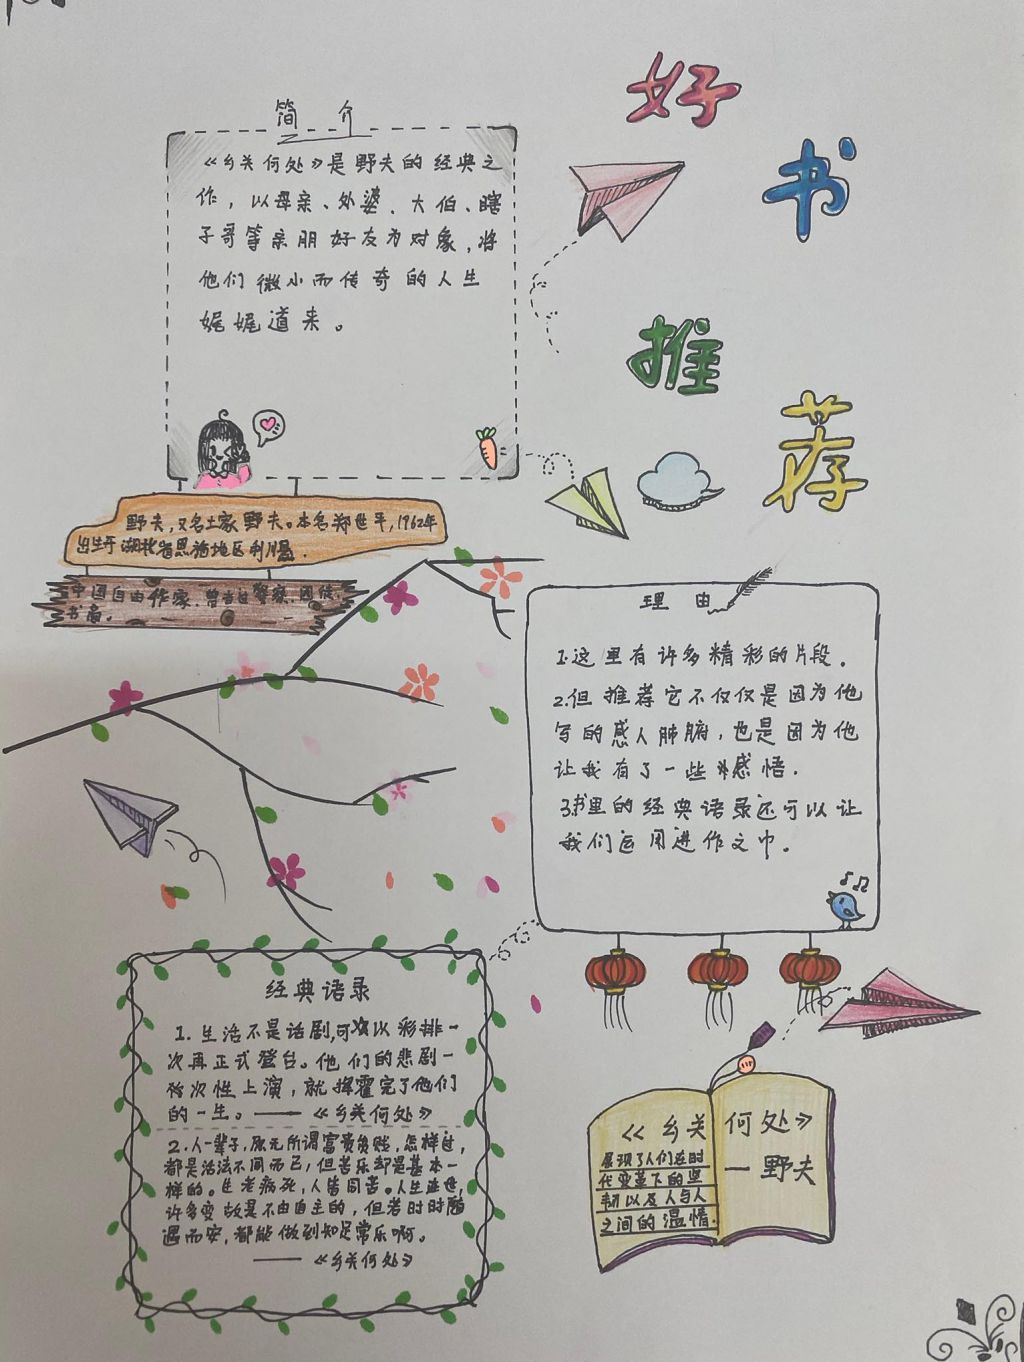 好
书
推
荐
简 介
《乡关何处》是野夫的经典之
作，以母亲、外婆、大伯、瞎
子哥等亲朋好友为对象，将
他们微小而传奇的人生
娓娓道来。
野夫，又名土家野夫。本名郑世平，1962年
出生于湖北省恩施地区利川县.
中国自由作家.曾当过警察、囚徒、
书商。
理 由
1.这里有许多精彩的片段.
2.但推荐它不仅仅是因为他
写的感人肺腑，也是因为他
让我有了一些感悟.
3.书里的经典语录还可以让
我们运用进作文中。
经典语录
1. 生活不是话剧,可以彩排一
次再正式登台。他们的悲剧一
次性上演，就挥霍完了他们
的一生。——《乡关何处》
2.人一辈子,原无所谓富贵贫贱,怎样过,
都是活法不同而已,但苦乐却是基本一
样的。生老病死,人皆同苦。人生
许多变故是不由自主的，但若时时随
遇而安,都能做到知足常乐啊。
——《乡关何处》
《乡关何处》
—野夫
展现了人们在时
代变革下的坚
韧以及人与人
之间的温情.